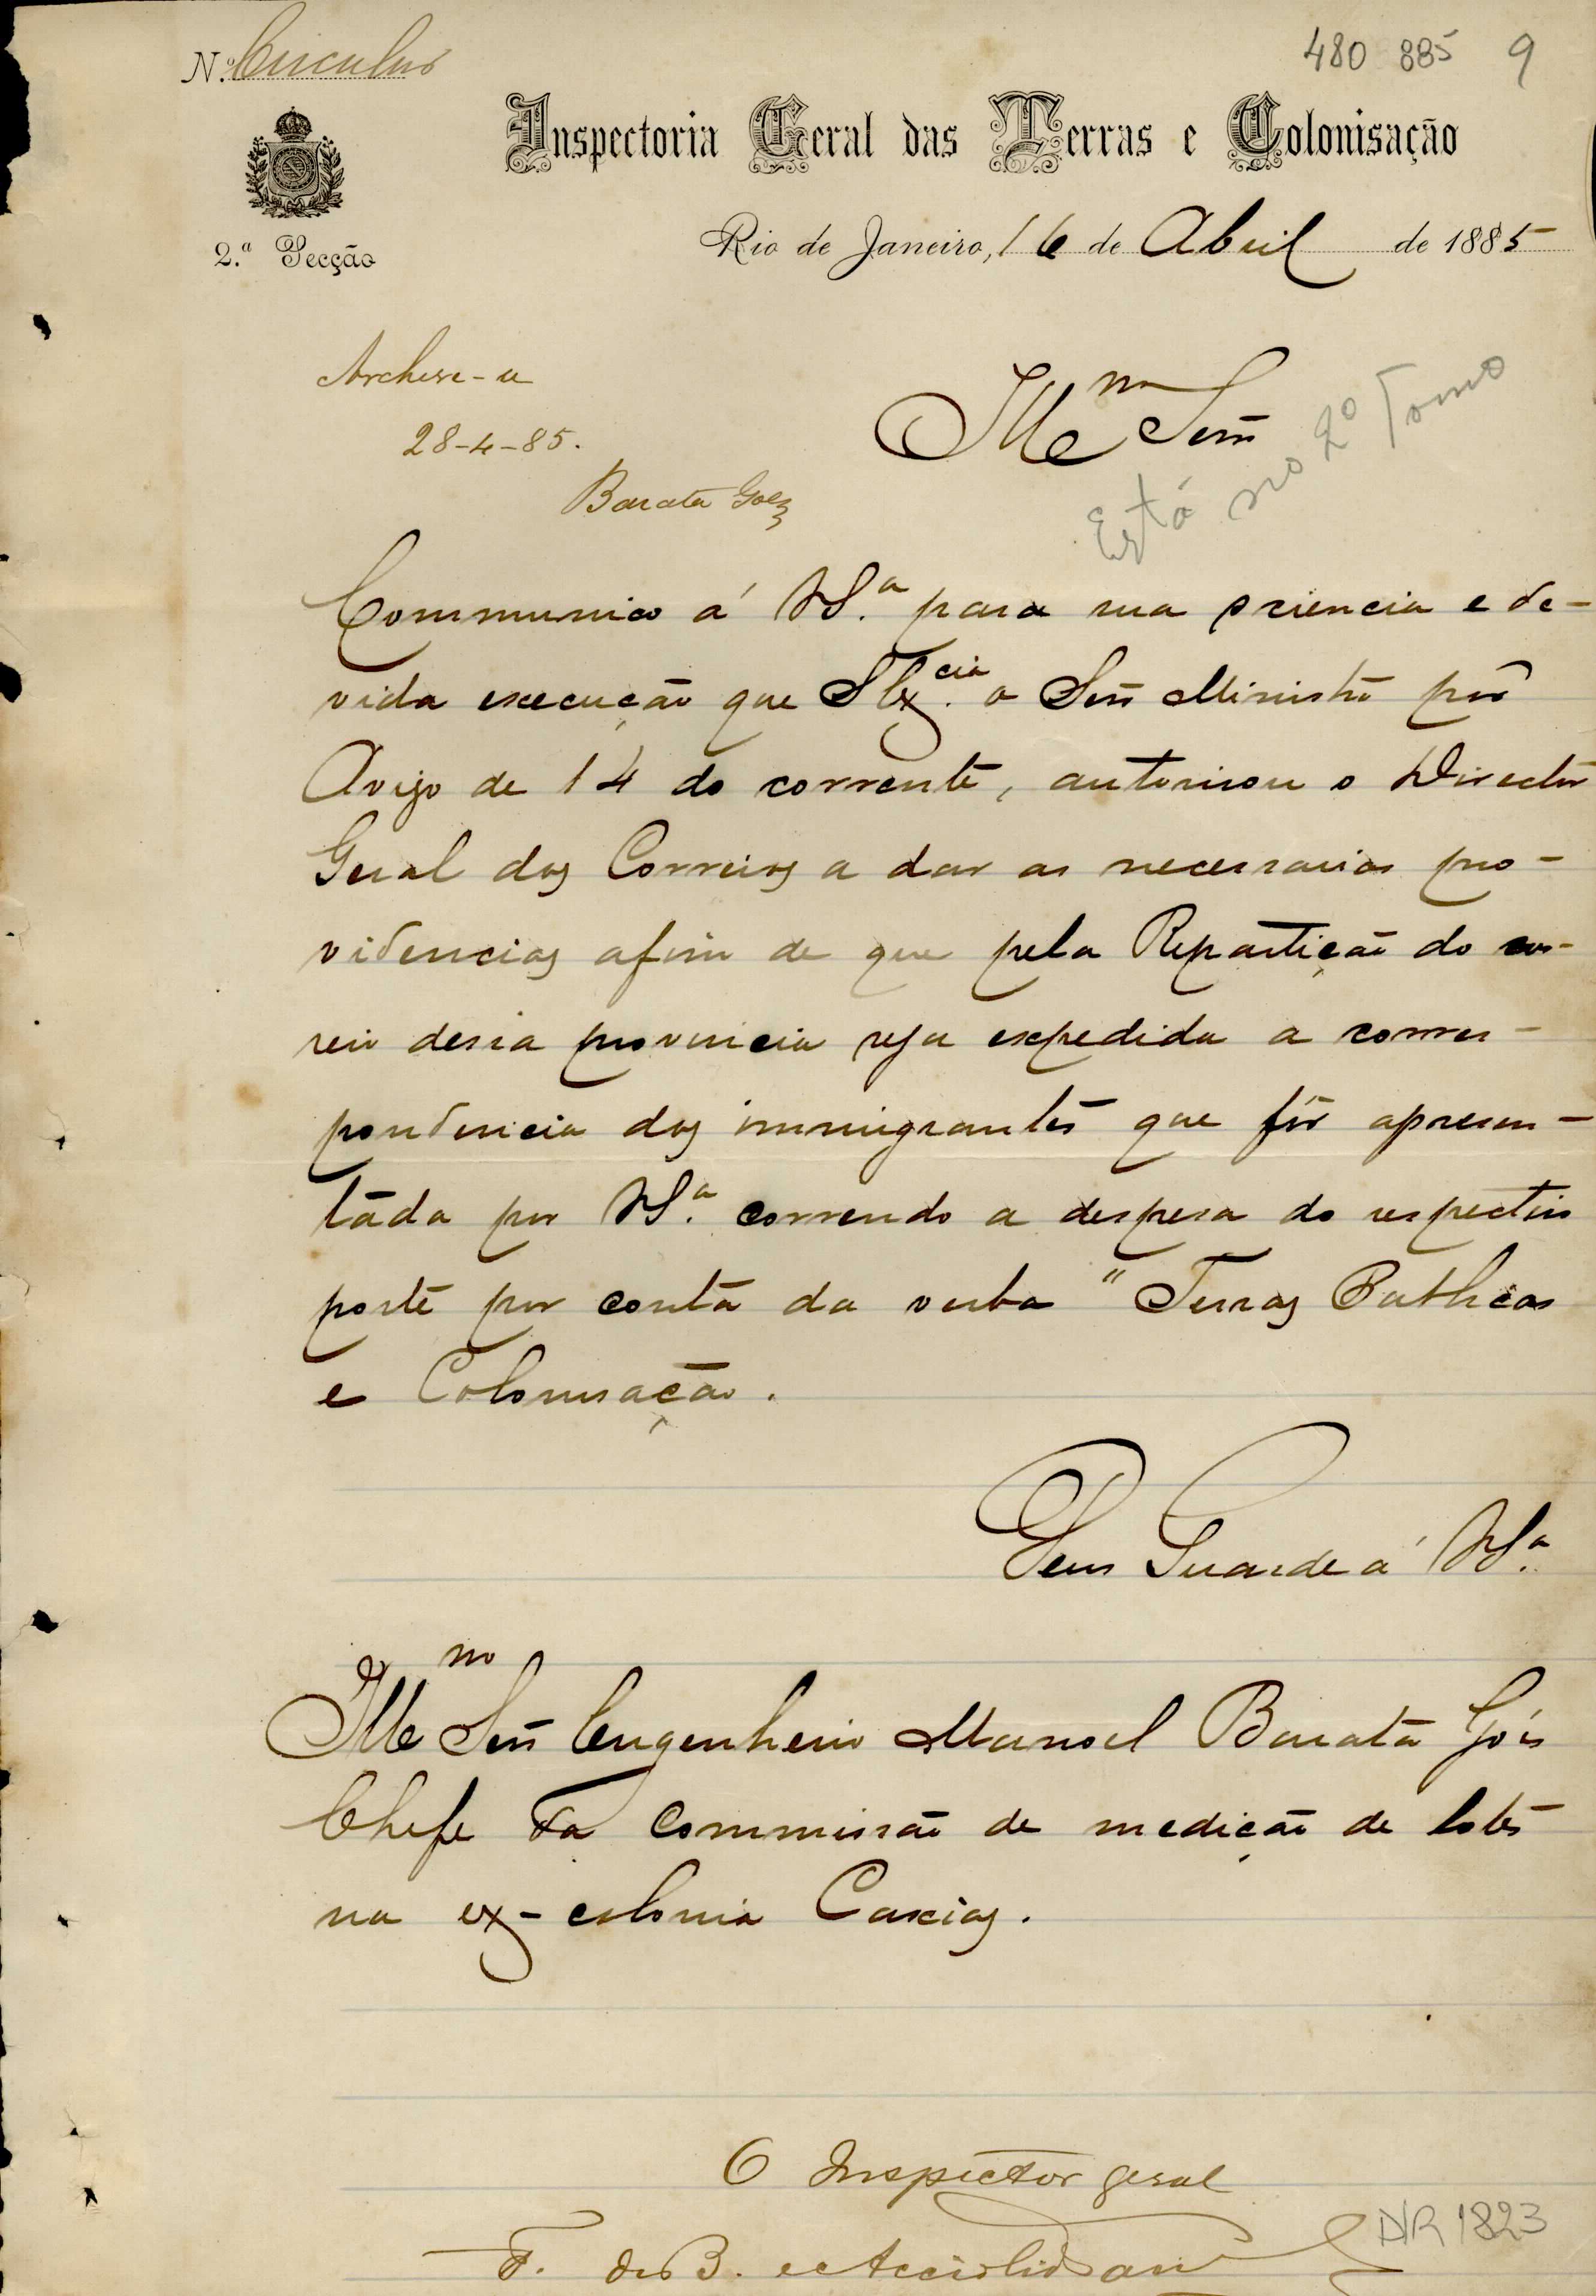 Nº Circular
480 885 9
Inspectoria Geral das Terras e Colonisação
2.ª Secção
Rio de Janeiro, 16 de Abril de 1885
Archive-se
28-4-85.
Barata Góes
Illmo Senr
Está no 2º Tomo
Communico á VSª. para sua sciencia e de-
vida execução que S Excia. o Senr Ministro por
Aviso de 14 do corrente, autorisou o Director
Geral dos Correios a dar as necessarias pro-
videncias afim de que pela Repartição do cor-
reio dessa provincia seja expedida a corres-
pondencia dos immigrantes que fôr apresen-
tada por VSª. correndo a despesa do respectivo
porte por conta da verba "Terras Publicas
e Colonisação.
Deus Guarde á VSª.
Illmo Senr Engenheiro Manoel Barata Góis
Chefe da Commissão de medição de lotes
na ex-colonia Caxias.
O Inspector geral
F. de B. e Accioli de
NR 1823